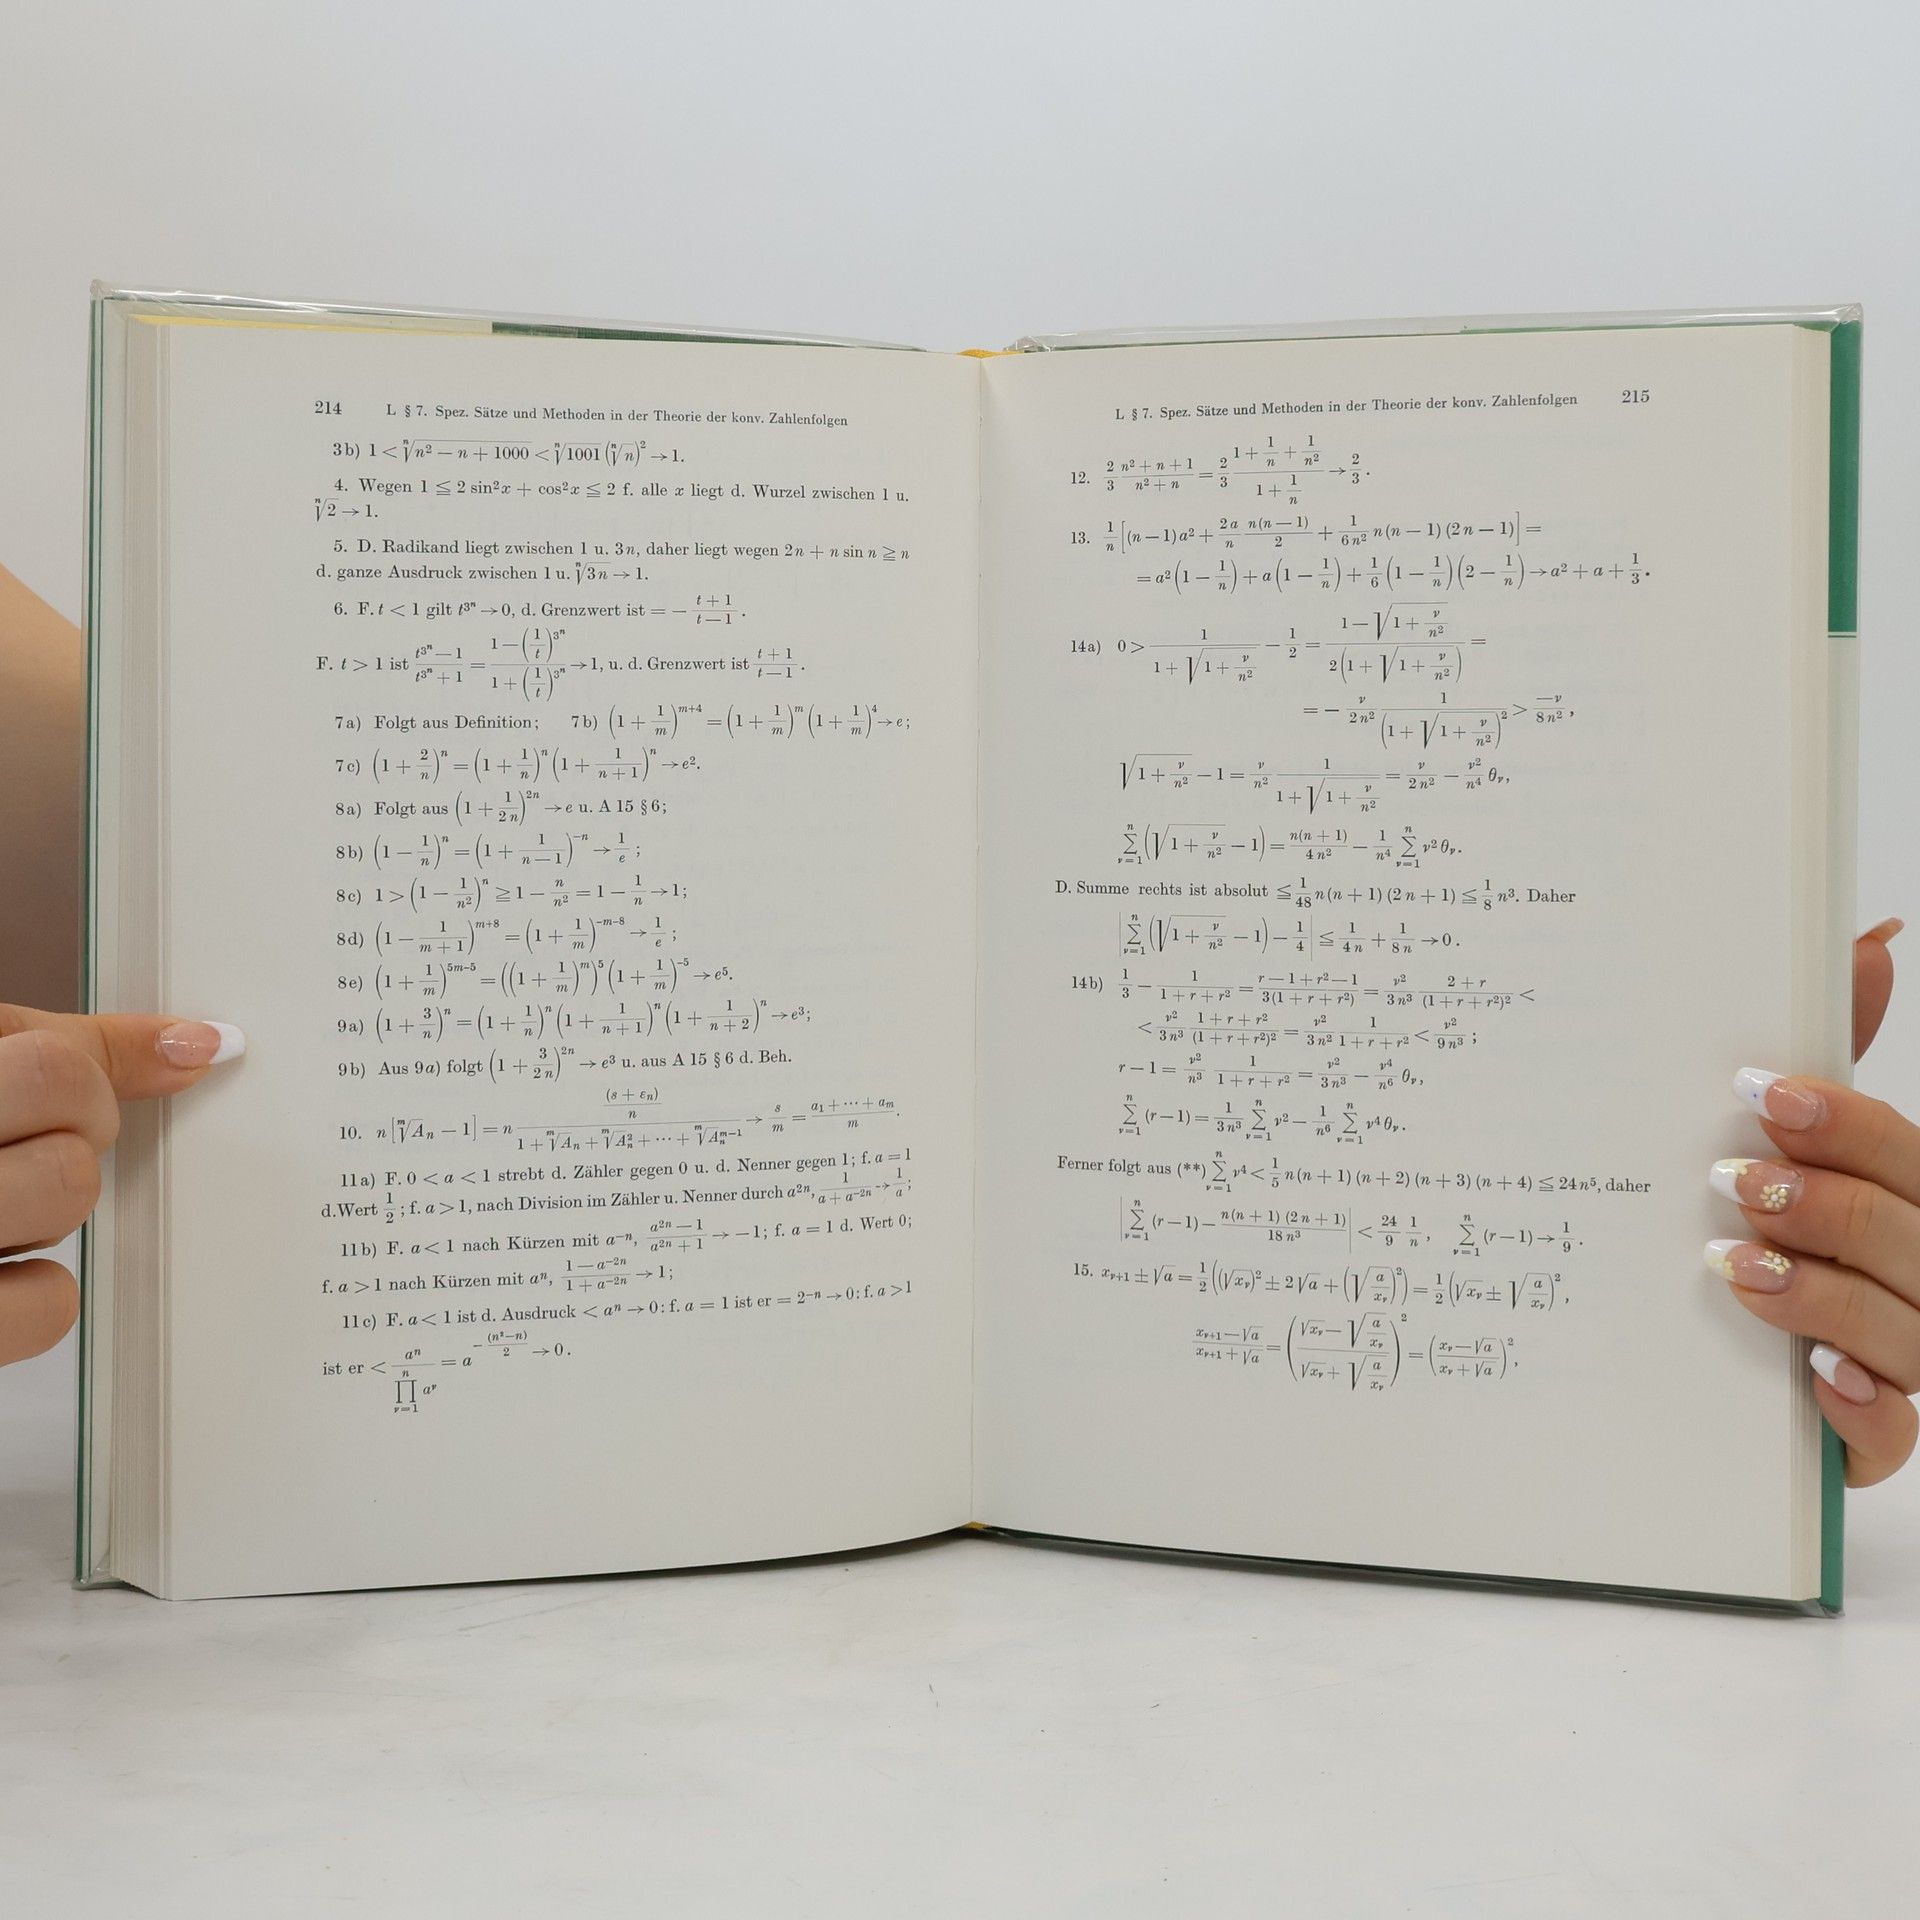 214 L § 7. Spez. Sätze und Methoden in der Theorie der konv. Zahlenfolgen
3b) 1 < ⁿ√(n² − n + 1000) < ⁿ√1001 (ⁿ√n)² → 1.
4. Wegen 1 ≦ 2 sin²x + cos²x ≦ 2 f. alle x liegt d. Wurzel zwischen 1 u.
ⁿ√2 → 1.
5. D. Radikand liegt zwischen 1 u. 3n, daher liegt wegen 2n + n sin n ≧ n
d. ganze Ausdruck zwischen 1 u. ⁿ√(3n) → 1.
6. F. t < 1 gilt t^(3ⁿ) → 0, d. Grenzwert ist = − (t+1)/(t−1).
F. t > 1 ist (t^(3ⁿ) − 1)/(t^(3ⁿ) + 1) = (1 − (1/t)^(3ⁿ))/(1 + (1/t)^(3ⁿ)) → 1, u. d. Grenzwert ist (t+1)/(t−1).
7a) Folgt aus Definition; 7b) (1 + 1/m)^(m+4) = (1 + 1/m)^m (1 + 1/m)^4 → e;
7c) (1 + 2/n)^n = (1 + 1/n)^n (1 + 1/(n+1))^n → e².
8a) Folgt aus (1 + 1/(2n))^(2n) → e u. A 15 § 6;
8b) (1 − 1/n)^n = (1 + 1/(n−1))^(−n) → 1/e;
8c) 1 > (1 − 1/n²)^n ≧ 1 − n/n² = 1 − 1/n → 1;
8d) (1 − 1/(m+1))^(m+8) = (1 + 1/m)^(−m−8) → 1/e;
8e) (1 + 1/m)^(5m−5) = ((1 + 1/m)^m)^5 (1 + 1/m)^(−5) → e⁵.
9a) (1 + 3/n)^n = (1 + 1/n)^n (1 + 1/(n+1))^n (1 + 1/(n+2))^n → e³;
9b) Aus 9a) folgt (1 + 3/(2n))^(2n) → e³ u. aus A 15 § 6 d. Beh.
10. n [ᵐ√Aₙ − 1] = n ((s + εₙ)/n)/(1 + ᵐ√Aₙ + ᵐ√Aₙ² + ⋯ + ᵐ√Aₙ^(m−1)) → s/m = (a₁ + ⋯ + aₘ)/m.
11a) F. 0 < a < 1 strebt d. Zähler gegen 0 u. d. Nenner gegen 1; f. a = 1
d. Wert 1/2; f. a > 1, nach Division im Zähler u. Nenner durch a^(2n), 1/(a + a^(−2n)) → 1/a;
11b) F. a < 1 nach Kürzen mit a^(−n), (a^(2n) − 1)/(a^(2n) + 1) → −1; f. a = 1 d. Wert 0;
f. a > 1 nach Kürzen mit aⁿ, (1 − a^(−2n))/(1 + a^(−2n)) → 1;
11c) F. a < 1 ist d. Ausdruck < aⁿ → 0: f. a = 1 ist er = 2^(−n) → 0: f. a > 1
ist er < aⁿ/∏_(ν=1)^n a^ν = a^(−(n²−n)/2) → 0.
L § 7. Spez. Sätze und Methoden in der Theorie der konv. Zahlenfolgen 215
12. 2/3 (n² + n + 1)/(n² + n) = 2/3 (1 + 1/n + 1/n²)/(1 + 1/n) → 2/3.
13. 1/n [(n − 1) a² + 2a/n n(n−1)/2 + 1/(6n²) n(n − 1) (2n − 1)] =
= a² (1 − 1/n) + a (1 − 1/n) + 1/6 (1 − 1/n) (2 − 1/n) → a² + a + 1/3.
14a) 0 > 1/(1 + √(1 + ν/n²)) − 1/2 = (1 − √(1 + ν/n²))/(2(1 + √(1 + ν/n²))) =
= − ν/(2n²) 1/(1 + √(1 + ν/n²))² > −ν/(8n²),
√(1 + ν/n²) − 1 = ν/n² 1/(1 + √(1 + ν/n²)) = ν/(2n²) − ν²/n⁴ θ_ν,
∑_(ν=1)^n (√(1 + ν/n²) − 1) = n(n+1)/(4n²) − 1/n⁴ ∑_(ν=1)^n ν² θ_ν.
D. Summe rechts ist absolut ≦ 1/48 n(n + 1) (2n + 1) ≦ 1/8 n³. Daher
|∑_(ν=1)^n (√(1 + ν/n²) − 1) − 1/4| ≦ 1/(4n) + 1/(8n) → 0.
14b) 1/3 − 1/(1 + r + r²) = (r − 1 + r² − 1)/(3(1 + r + r²)) = ν²/(3n³) (2 + r)/(1 + r + r²)² <
< ν²/(3n³) (1 + r + r²)/(1 + r + r²)² = ν²/(3n²) 1/(1 + r + r²) < ν²/(9n³);
r − 1 = ν²/n³ 1/(1 + r + r²) = ν²/(3n³) − ν⁴/n⁶ θ_ν,
∑_(ν=1)^n (r − 1) = 1/(3n³) ∑_(ν=1)^n ν² − 1/n⁶ ∑_(ν=1)^n ν⁴ θ_ν.
Ferner folgt aus (**) ∑_(ν=1)^n ν⁴ < 1/5 n(n + 1) (n + 2) (n + 3) (n + 4) ≦ 24n⁵, daher
|∑_(ν=1)^n (r − 1) − n(n + 1) (2n + 1)/(18n³)| < 24/9 1/n, ∑_(ν=1)^n (r − 1) → 1/9.
15. x_(ν+1) ± √a = 1/2 ((√x_ν)² ± 2√a + (√(a/x_ν))²) = 1/2 (√x_ν ± √(a/x_ν))²,
(x_(ν+1) − √a)/(x_(ν+1) + √a) = ((√x_ν − √(a/x_ν))/(√x_ν + √(a/x_ν)))² = ((x_ν − √a)/(x_ν + √a))²,